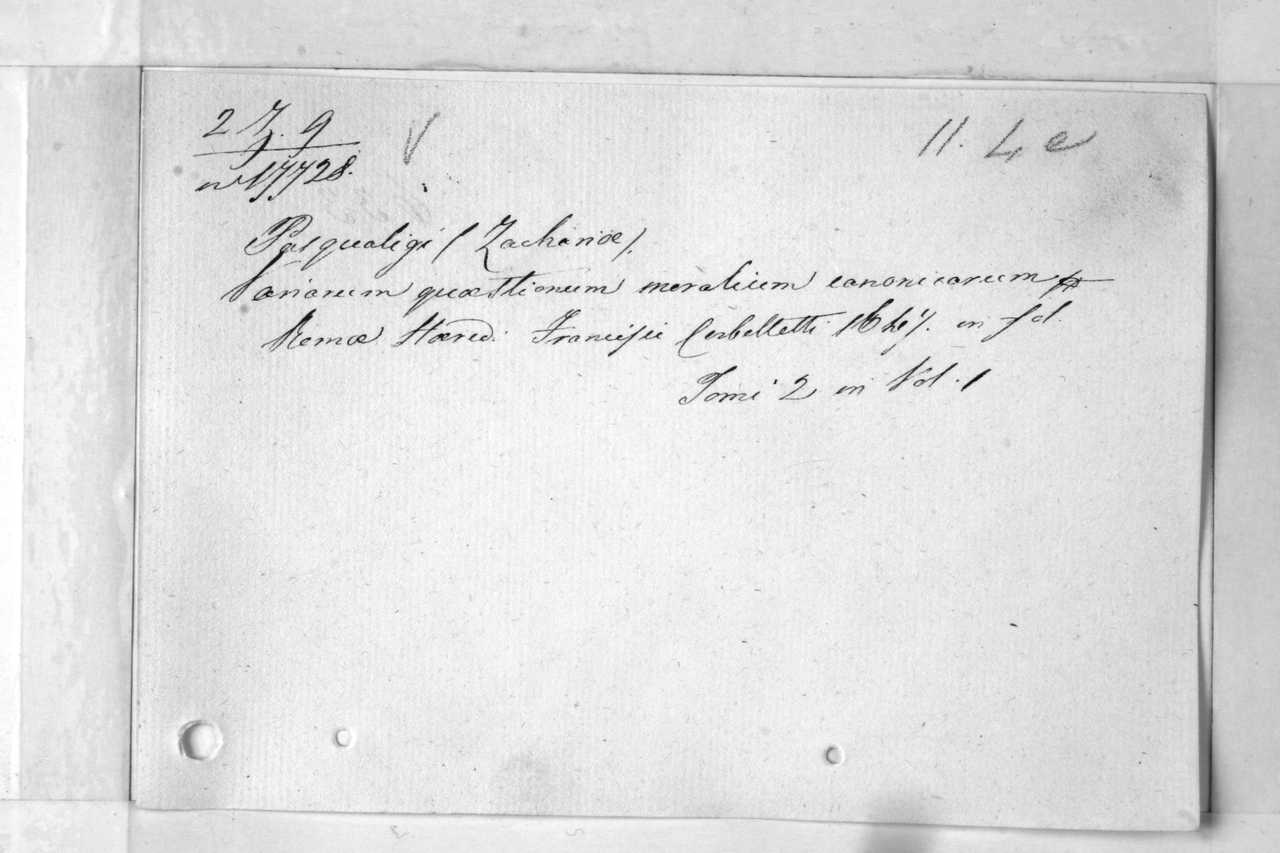 2 7. 9
V
11. L e
n° 17728.
Pasqualigi (Zachariæ).
Variarum quæstionum moralium canonicarum
Romæ Hæred. Francisci Corbelletti 1647. in fol.
Tomi 2 in Vol. 1